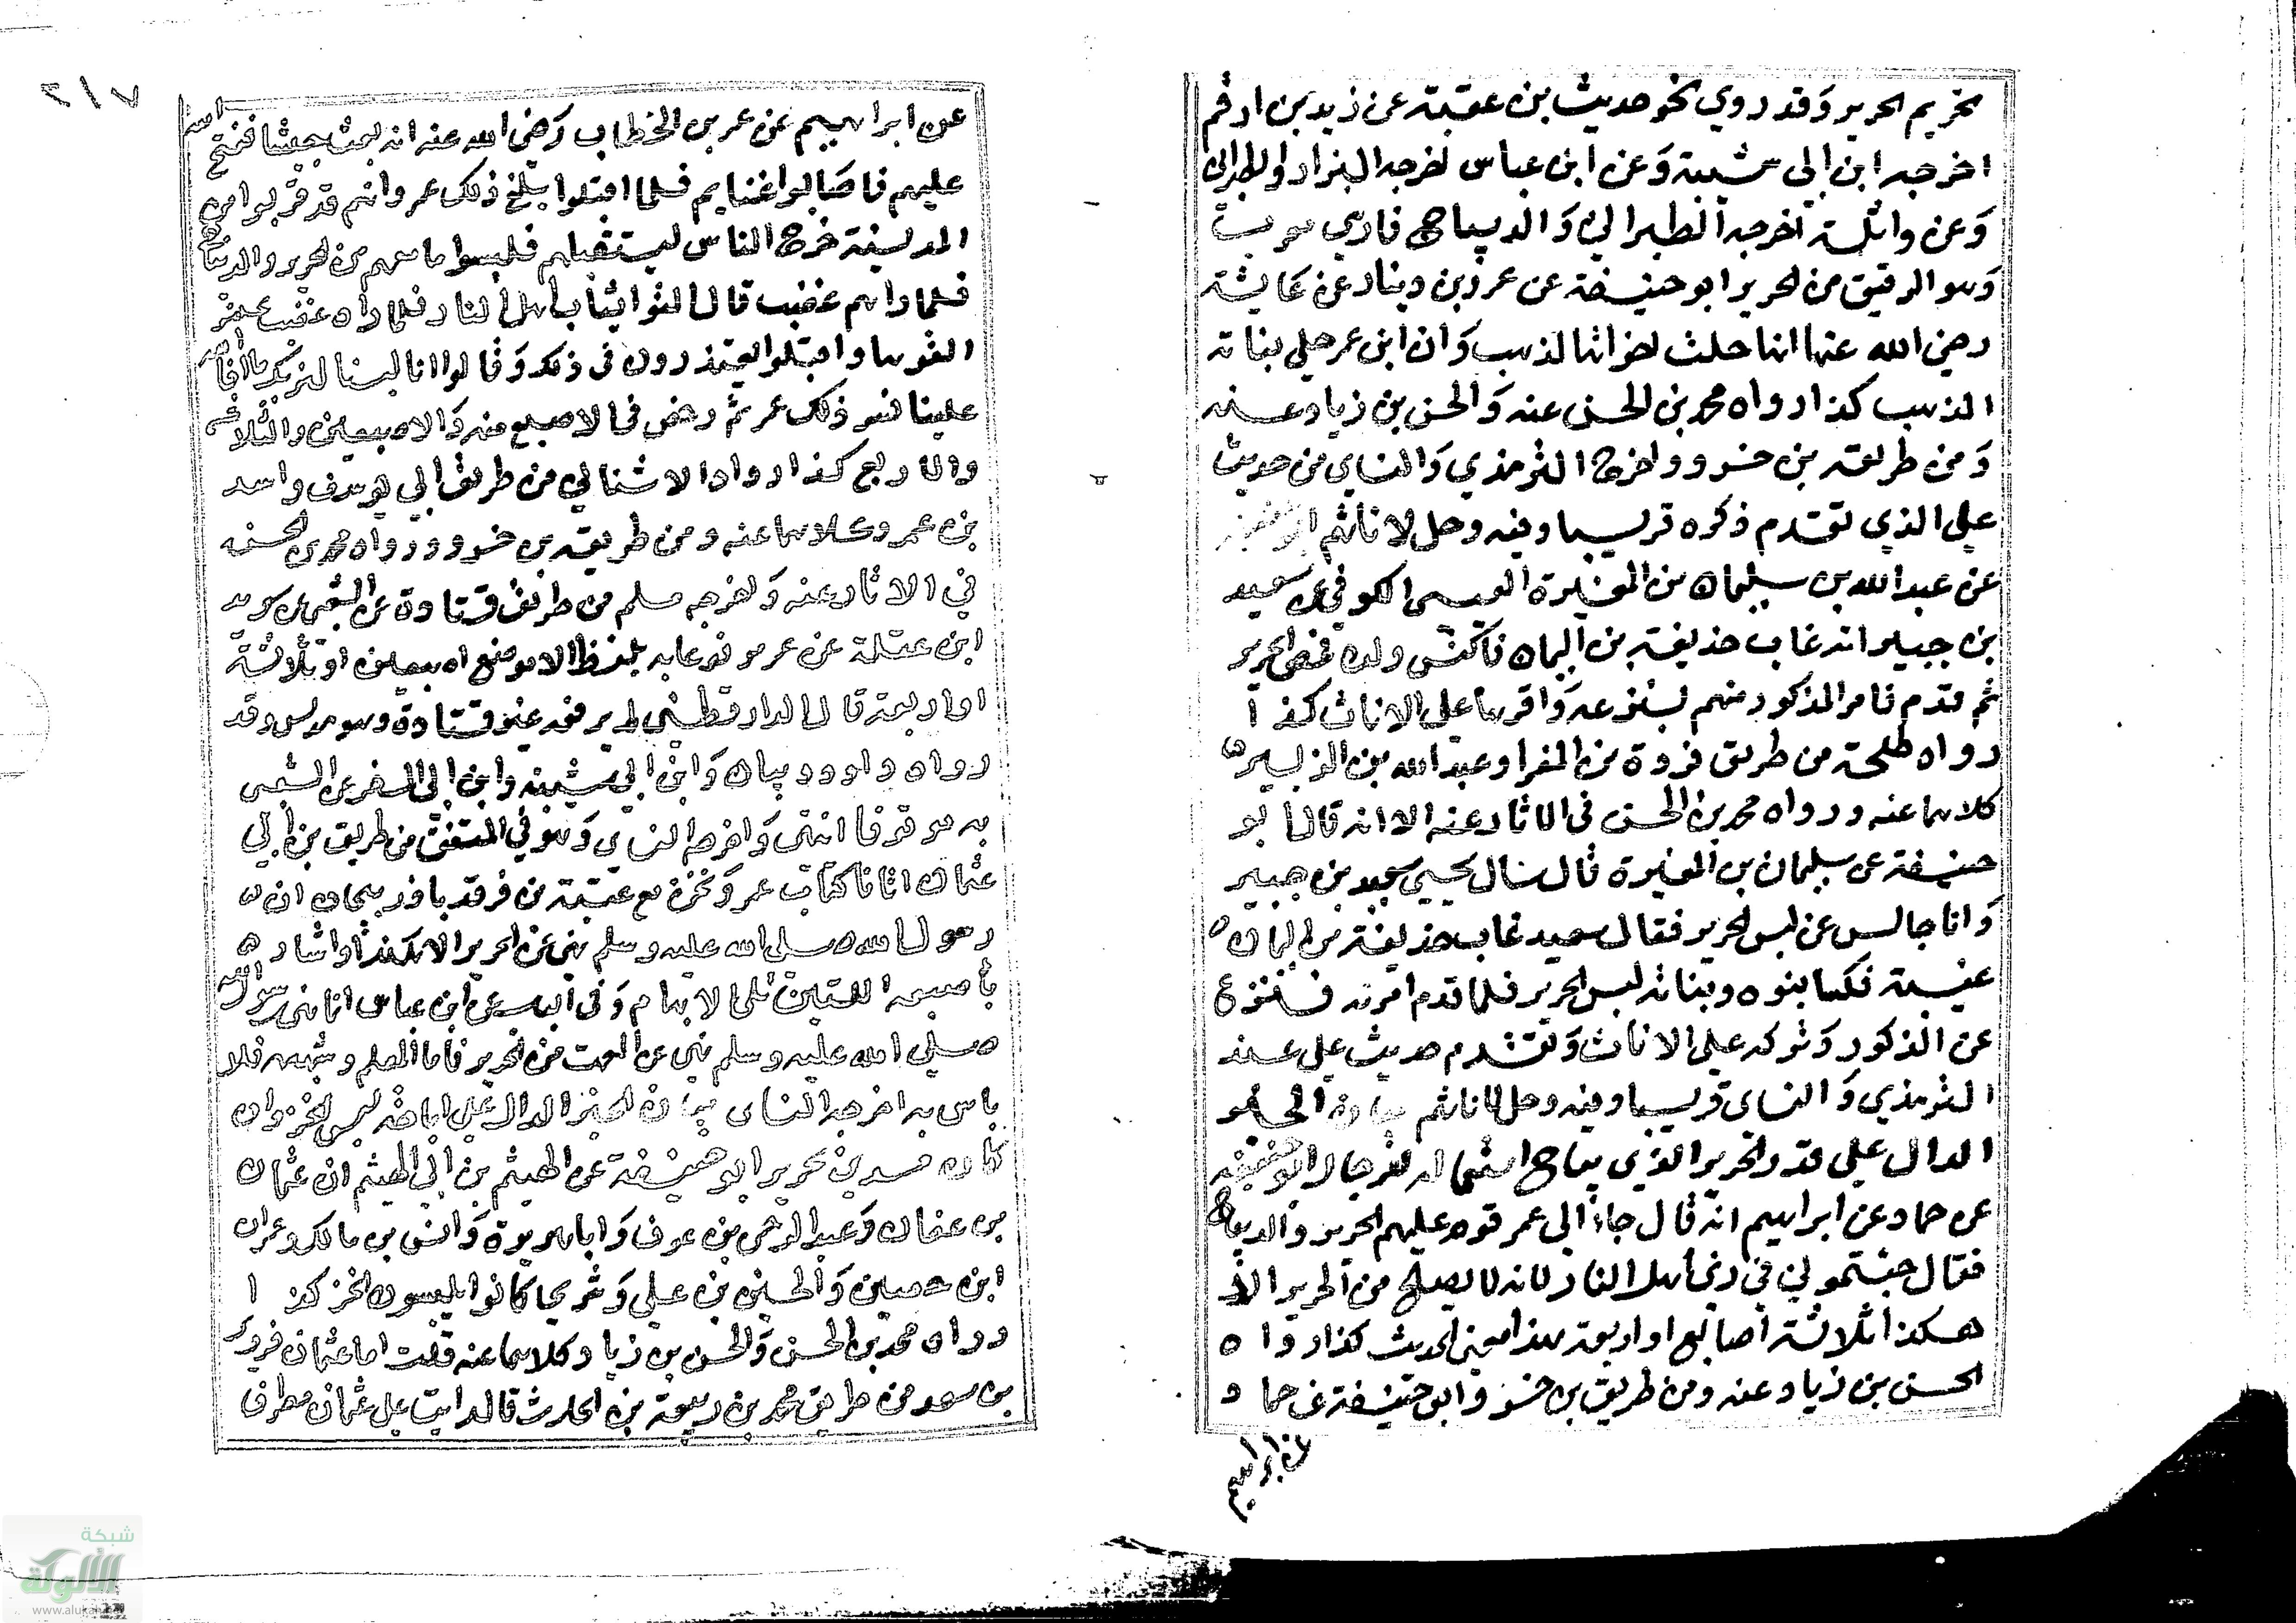 تحريم الحرير وقد روي نحو حديث بن عقبة عن زيد بن ارقم
اخرجه ابن ابي شيبة وعن ابن عباس اخرجه البزار والطبراني
وعن واثلة اخرجه الطبراني والديباج فارسي معرب
وهو الرقيق من الحرير ابو حنيفة عن عمرو بن دينار عن عايشة
رضي الله عنها انها حلت اخواتها الذهب وان ابن عمر حلي بناته
الذهب كذا رواه محمد بن الحسن عنه والحسن بن زياد عنه
ومن طريقه بن خسرو واخرج الترمذي والنساي من حديث
علي الذي تقدم ذكره قريبا وفيه وحل لاناثهم ابو حنيفة
عن عبد الله بن سليمان بن المغيرة القيسي الكوفي عن سعيد
بن جبير انه غاب حذيفة بن اليمان فاكتسي ولده قمص الحرير
ثم قدم فامر المذكور منهم بنزعه واقرها علي الاناث كذا
رواه طلحة من طريق فروة بن المغرا وعبد الله بن الزبير
كلاهما عنه ورواه محمد بن الحسن في الاثار عنه الا انه قال ابو
حنيفة عن سليمان بن المغيرة قال سال يحيي سعيد بن جبير
وانا جالس عن لبس الحرير فقال سعيد غاب حذيفة بن اليمان
غيبة فكسا بنوه وبناته لبس الحرير فلما قدم امر به فنزع
عن الذكور وتركه علي الاناث وتقدم حديث علي عند
الترمذي والنساي قريبا وفيه وحل لاناثهم بيان الخبر
الدال علي قدر الحرير الذي يباح استعماله للرجال ابو حنيفة
عن حماد عن ابراهيم انه قال جاء الي عمر قوم عليهم الحرير والديباج
فقال جيتموني في زي أهل النار لانه لا يصلح من الحرير الا
هكذا ثلاثة أصابع او اربعة هذا معني الحديث كذا رواه
الحسن بن زياد عنه ومن طريق بن خسرو ابو حنيفة عن حماد
عن ابراهيم
٢١٧
عن ابراهيم عن عمر بن الخطاب رضي الله عنه انه بعث جيشا ففتح الله
عليهم فاصابوا غنايم فلما اقبلوا بلغ ذلك عمر وانهم قد قربوا من
المدينة خرج الناس ليستقبلهم فلبسوا ما معهم من الحرير والديباج
فلما راهم غضب قال القوا ثياب أهل النار فلما راوا غضب عمر
القوها واقبلوا يعتذرون في ذلك وقالوا انا لبسنا لنريك ما افاء الله
علينا فسر ذلك عمر ثم رخص في الاصبع منه والاصبعين والثلاثة
والاربع كذا رواه الاشناني من طريق ابي يوسف واسد
بن عمرو كلاهما عنه ومن طريقه بن خسرو ورواه محمد بن الحسن
في الاثار عنه واخرجه مسلم من طريق قتادة عن الشعبي عن سويد
ابن غفلة عن عمر مرفوعا به بلفظ الا موضع اصبعين او ثلاثة
او اربعة قال الدارقطني لم يرفعه غير قتادة وهو مدلس وقد
رواه داوود وبيان وابن ابي شيبة وابن ابي السفر عن الشعبي
به موقوفا انتهي واخرجه النساي وهو في المتفق من طريق بن ابي
عثمان اتانا كتاب عمر ونحن مع عتبة بن فرقد باذربيجان ان
رسول الله صلي الله عليه وسلم نهي عن الحرير الا هكذا واشار
بأصبعيه اللتين تلي الابهام وفي الباب عن ابن عباس انما نهي رسول الله
صلي الله عليه وسلم نهي عن المصمت من الحرير فاما العلم وشبهه فلا
باس به اخرجه النساي بيان الخبر الدال علي اباحة لبس الخز وان
كان سدي من حرير ابو حنيفة عن الهيثم بن ابي الهيثم ان عثمان
بن عفان وعبد الرحمن بن عوف وابا هريرة وانس بن مالك وعمران
ابن حصين والحسين بن علي وشريحا كانوا يلبسون الخز كذا
رواه محمد بن الحسن والحسن بن زياد كلاهما عنه قلت اما عثمان فروي
بن سعد من طريق محمد بن ربيعة بن الحارث قال رايت علي عثمان مطرف
شبكة
الألوكة